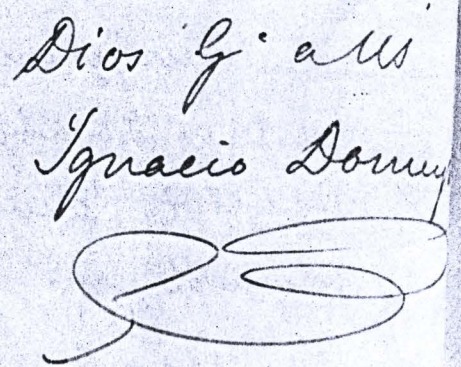 Dios G. a Us
Ignacio Domey